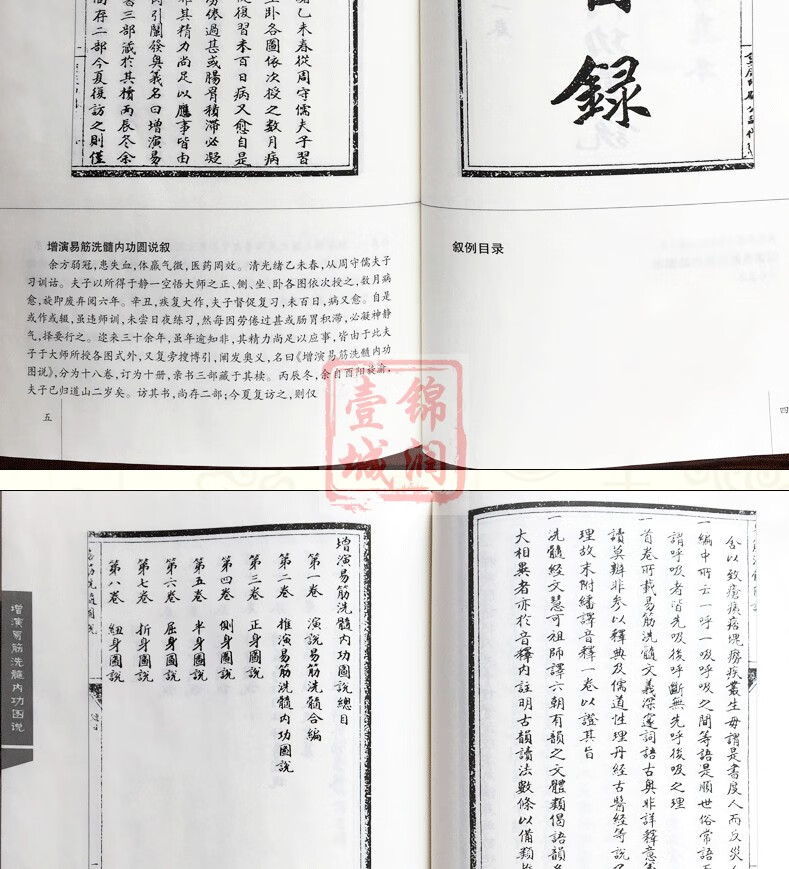 目錄
叙例目录
四
緒乙未春從周守儒夫子習
坐卧各圖依次授之數月病
促復習未百日病又愈自是
勞倦過甚或腸胃積滯必凝
非其精力尚足以應事皆由
引闡發奧義名曰增演易
書三部藏於其櫝丙辰冬余
尚存二部今夏復訪之則僅
增演易筋洗髓内功圆说叙
余方弱冠,患失血,体羸气微,医药罔效。清光绪乙未春,从周守儒夫子
习训诂。夫子以所得于静一空悟大师之正、侧、坐、卧各图依次授之,数月病
愈,旋即废弃阅六年。辛丑,疾复大作,夫子督促复习,未百日,病又愈。自是
或作或辍,虽违师训,未尝日夜练习,然每因劳倦过甚或肠胃积滞,必凝神静
气,择要行之。迩来三十余年,虽年逾知非,其精力尚足以应事,皆由于此夫
子于大师所授各图式外,又复旁搜博引,阐发奥义,名曰《增演易筋洗髓内功
图说》,分为十八卷,订为十册,亲书三部藏于其椟。丙辰冬,余自酉阳旋渝,
夫子已归道山二岁矣。访其书,尚存二部;今夏复访之,则仅
五
锦润壹城
舍以致瘡痍痞塊癆疾叢生毋謂是書度人而反災人
一編中所云一呼一吸呼吸之間等語是順世俗常語
謂呼吸者皆先吸後呼斷無先呼後吸之理
一首卷所載易筋洗髓文義深邃詞語古奧非詳釋意
讀莫辨非參以釋典及儒道性理丹經古醫經等說
理故末附繙譯音釋一卷以證其旨
一洗髓經文慧可祖師譯六朝有韻之文體類偈語韻
大相異者亦於音釋內註明古韻讀法數條以備類
增演易筋洗髓內功圖說總目
第一卷 演說易筋洗髓合編
第二卷 推演易筋洗髓內功圖說
第三卷 正身圖說
第四卷 側身圖說
第五卷 半身圖說
第六卷 屈身圖說
第七卷 折身圖說
第八卷 紐身圖說
增演易筋洗髓内功图说